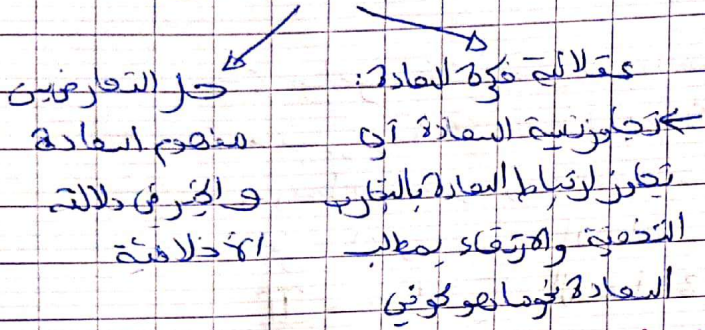 عقلانية فكرة السعادة:
← تجاوز نسبية السعادة أي
تجاوز ارتباط السعادة بالتجارب
الشخصية والارتقاء بمطالب
السعادة نحو ما هو كوني
حل التعارض بين
مفهوم السعادة
والخير في دلالته
الأخلاقية